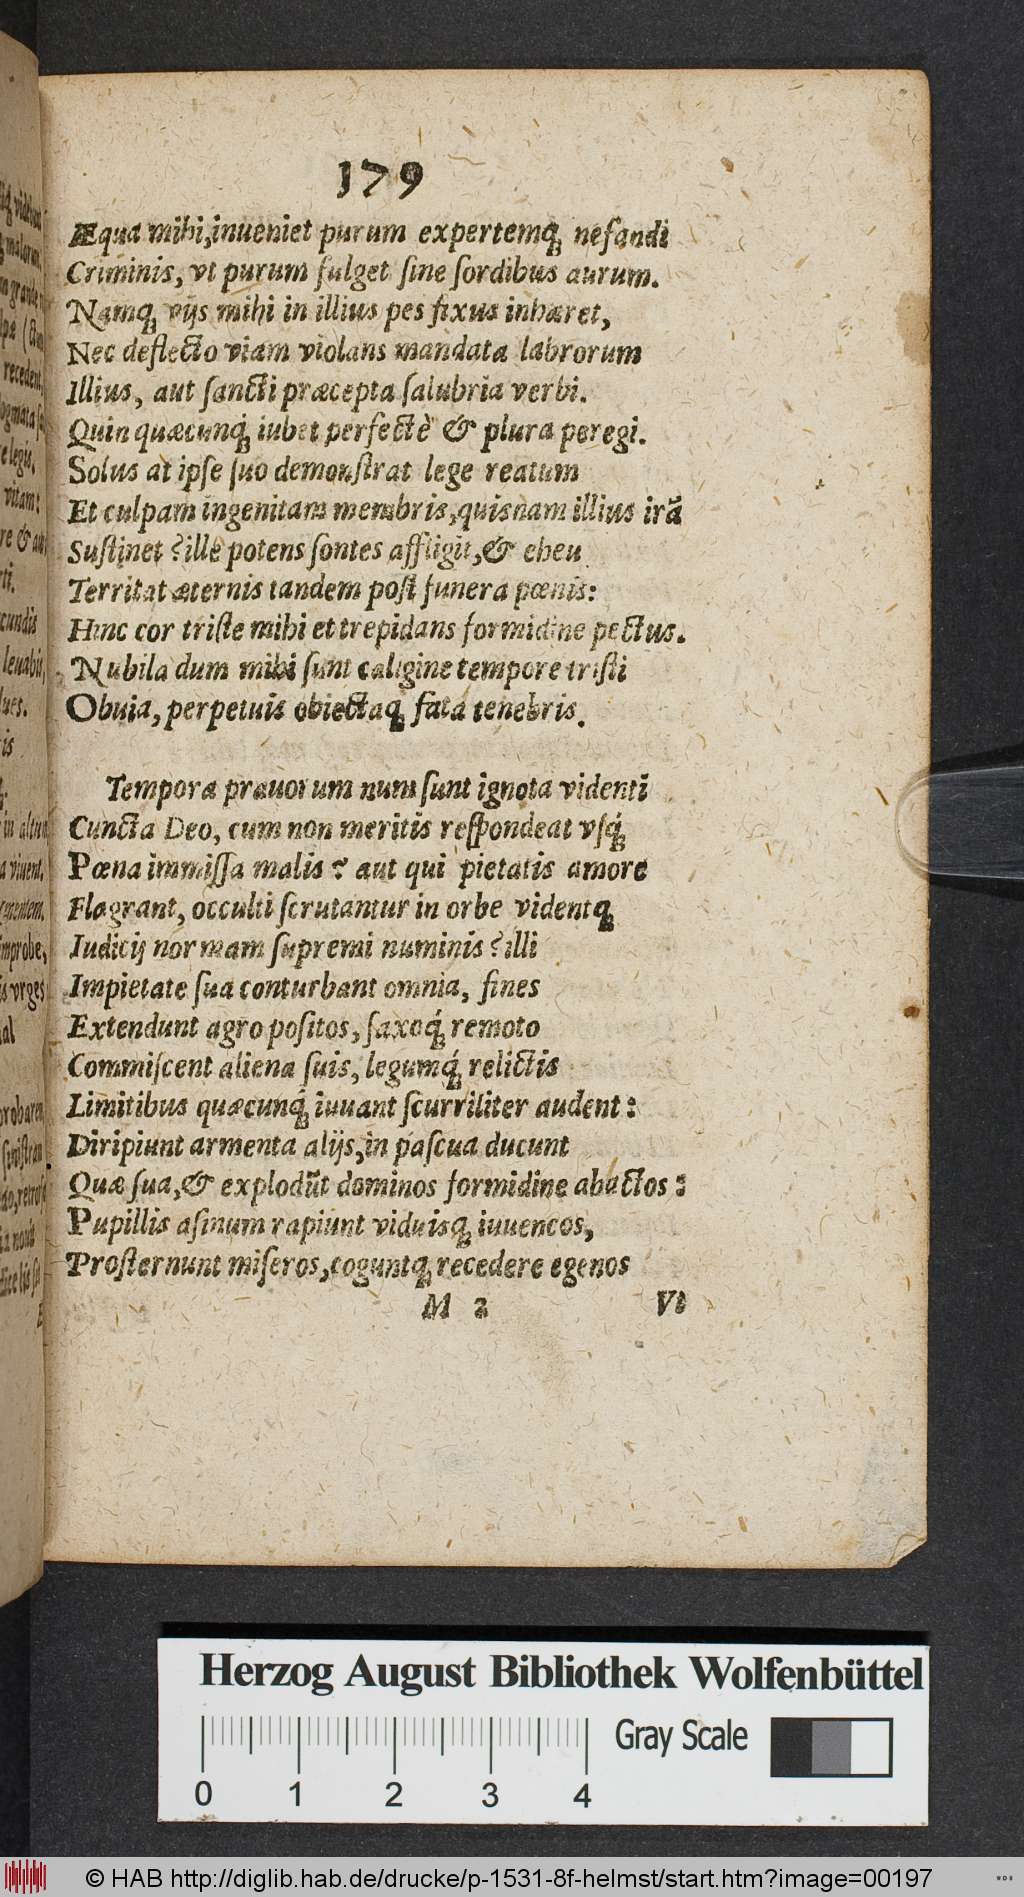 179
Æqua mihi,inueniet purum expertemq; nefandi
Criminis, vt purum fulget ſine ſordibus aurum.
Namq; vijs mihi in illius pes fixus inhæret,
Nec deflecto viam violans mandata labrorum
Illius, aut ſancti præcepta ſalubria verbi.
Quin quæcunq́; iubet perfectè & plura peregi.
Solus at ipſe ſuo demonſtrat lege reatum
Et culpam ingenitam membris,quisnam illius irã
Suſtinet ? ille potens ſontes affligit,& eheu
Territat æternis tandem poſt funera pœnis:
Hinc cor triſte mihi et trepidans formidine pectus.
Nubila dum mihi ſunt caligine tempore triſti
Obuia, perpetuis obiectaq; fata tenebris.
Tempora prauorum num ſunt ignota videnti
Cuncta Deo, cum non meritis reſpondeat vſq́;
Pœna immiſſa malis ? aut qui pietatis amore
Flagrant, occulti ſcrutantur in orbe videntq;
Iudicij normam ſupremi numinis ? illi
Impietate ſua conturbant omnia, fines
Extendunt agro poſitos, ſaxoq́; remoto
Commiſcent aliena ſuis, legumq́; relictis
Limitibus quæcunq́; iuuant ſcurriliter audent:
Diripiunt armenta alijs,in paſcua ducunt
Quæ ſua,& explodũt dominos formidine abactos:
Pupillis aſinum rapiunt viduisq; iuuencos,
Proſternunt miſeros,coguntq; recedere egenos
M 2 Vt
Herzog August Bibliothek Wolfenbüttel
Gray Scale
0 1 2 3 4
© HAB http://diglib.hab.de/drucke/p-1531-8f-helmst/start.htm?image=00197